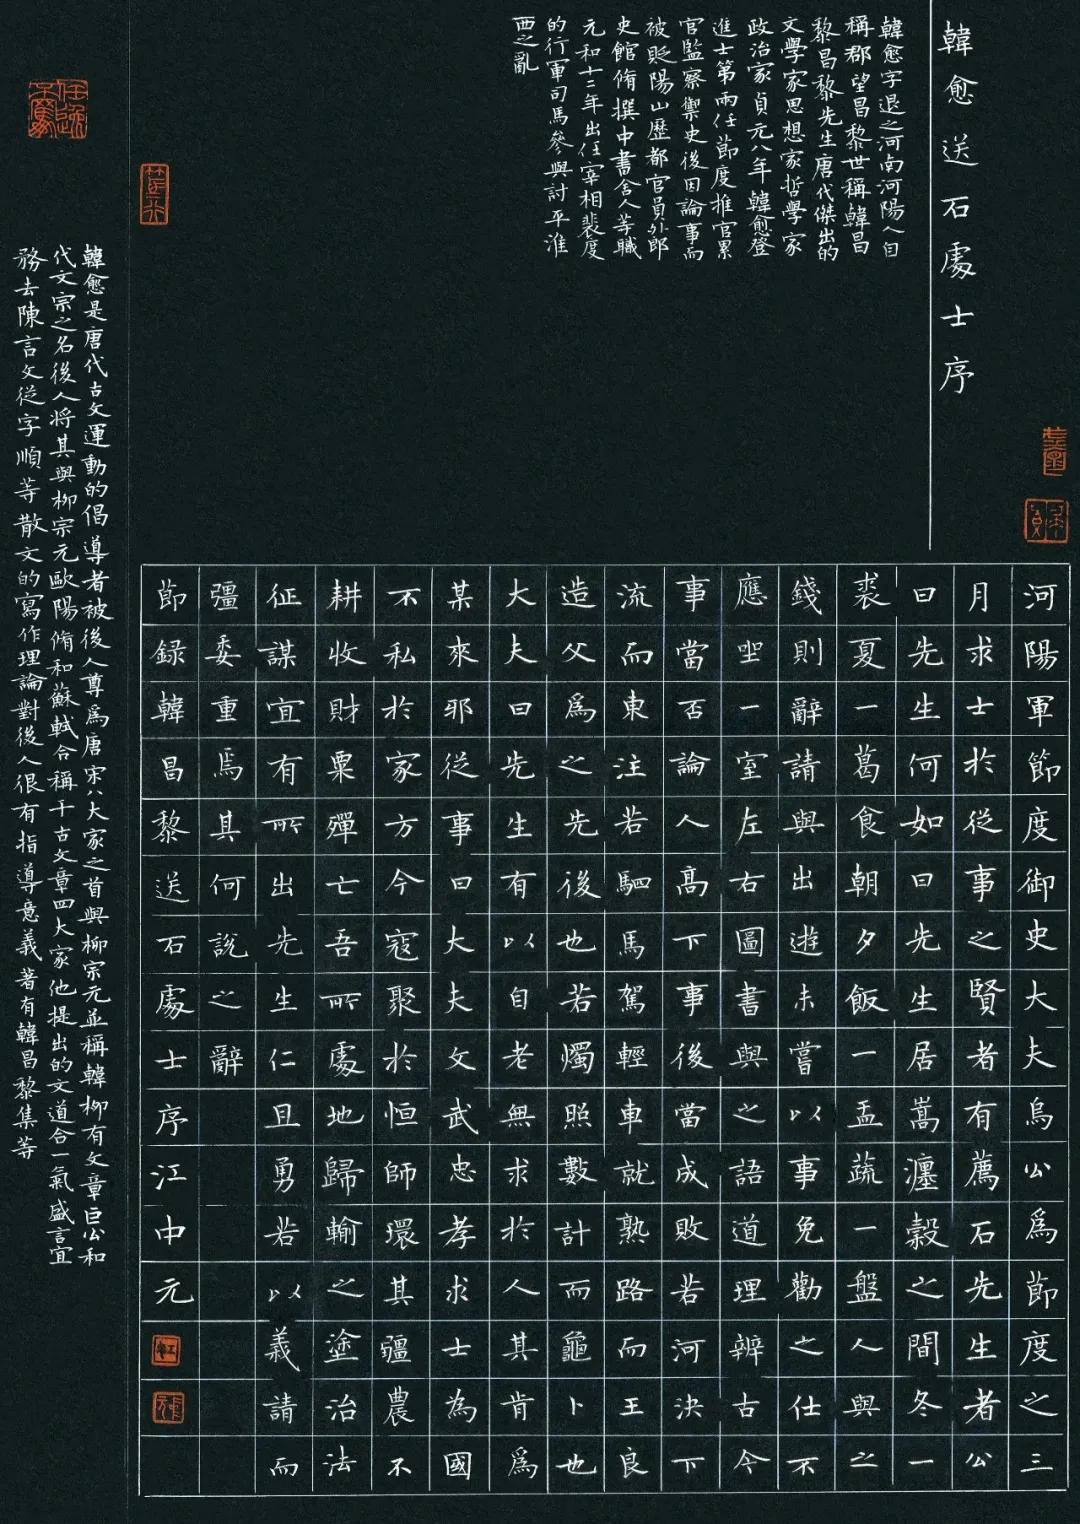 韓愈送石處士序
韓愈字退之河南河陽人自
稱郡望昌黎世稱韓昌
黎昌黎先生唐代傑出的
文學家思想家哲學家
政治家貞元八年韓愈登
進士第兩任節度推官累
官監察禦史後因論事而
被貶陽山歷都官員外郎
史館脩撰中書舍人等職
元和十二年出任宰相裴度
的行軍司馬參與討平淮
西之亂
河陽軍節度御史大夫烏公爲節度之三
月求士於從事之賢者有薦石先生者公
曰先生何如曰先生居嵩瀍穀之間冬一
裘夏一葛食朝夕飯一盂蔬一盤人與之
錢則辭請與出遊未嘗以事免勸之仕不
應坐一室左右圖書與之語道理辨古今
事當否論人高下事後當成敗若河決下
流而東注若駟馬駕輕車就熟路而王良
造父爲之先後也若燭照數計而龜卜也
大夫曰先生有以自老無求於人其肯爲
某來耶從事曰大夫文武忠孝求士為國
不私於家方今寇聚於恒師環其疆農不
耕收財粟殫亡吾所處地歸輸之塗治法
征謀宜有所出先生仁且勇若以義請而
彊委重焉其何說之辭
節録韓昌黎送石處士序江中元
韓愈是唐代古文運動的倡導者被後人尊爲唐宋八大家之首與柳宗元並稱韓柳有文章巨公和
代文宗之名後人將其與柳宗元歐陽脩和蘇軾合稱千古文章四大家他提出的文道合一氣盛言宜
務去陳言文從字順等散文的寫作理論對後人很有指導意義著有韓昌黎集等